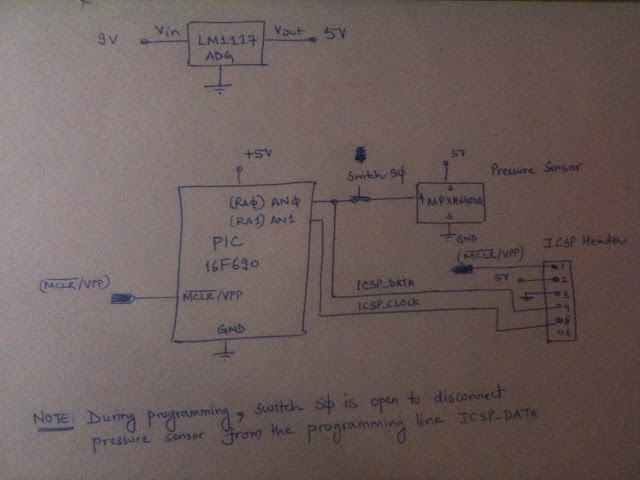 9V
Vin
LM1117
ADG
Vout
5V
+5V
(RAØ) ANØ
(RA1) AN1
PIC
16F690
MCLR/VPP
GND
(MCLR/VPP)
Switch SØ
5V
Pressure Sensor
2
4
3
GND
(MCLR/VPP)
ICSP Header
5V
1
2
3
4
5
6
ICSP_DATA
ICSP_CLOCK
NOTE: During programming, switch SØ is open to disconnect
pressure sensor from the programming line ICSP_DATA